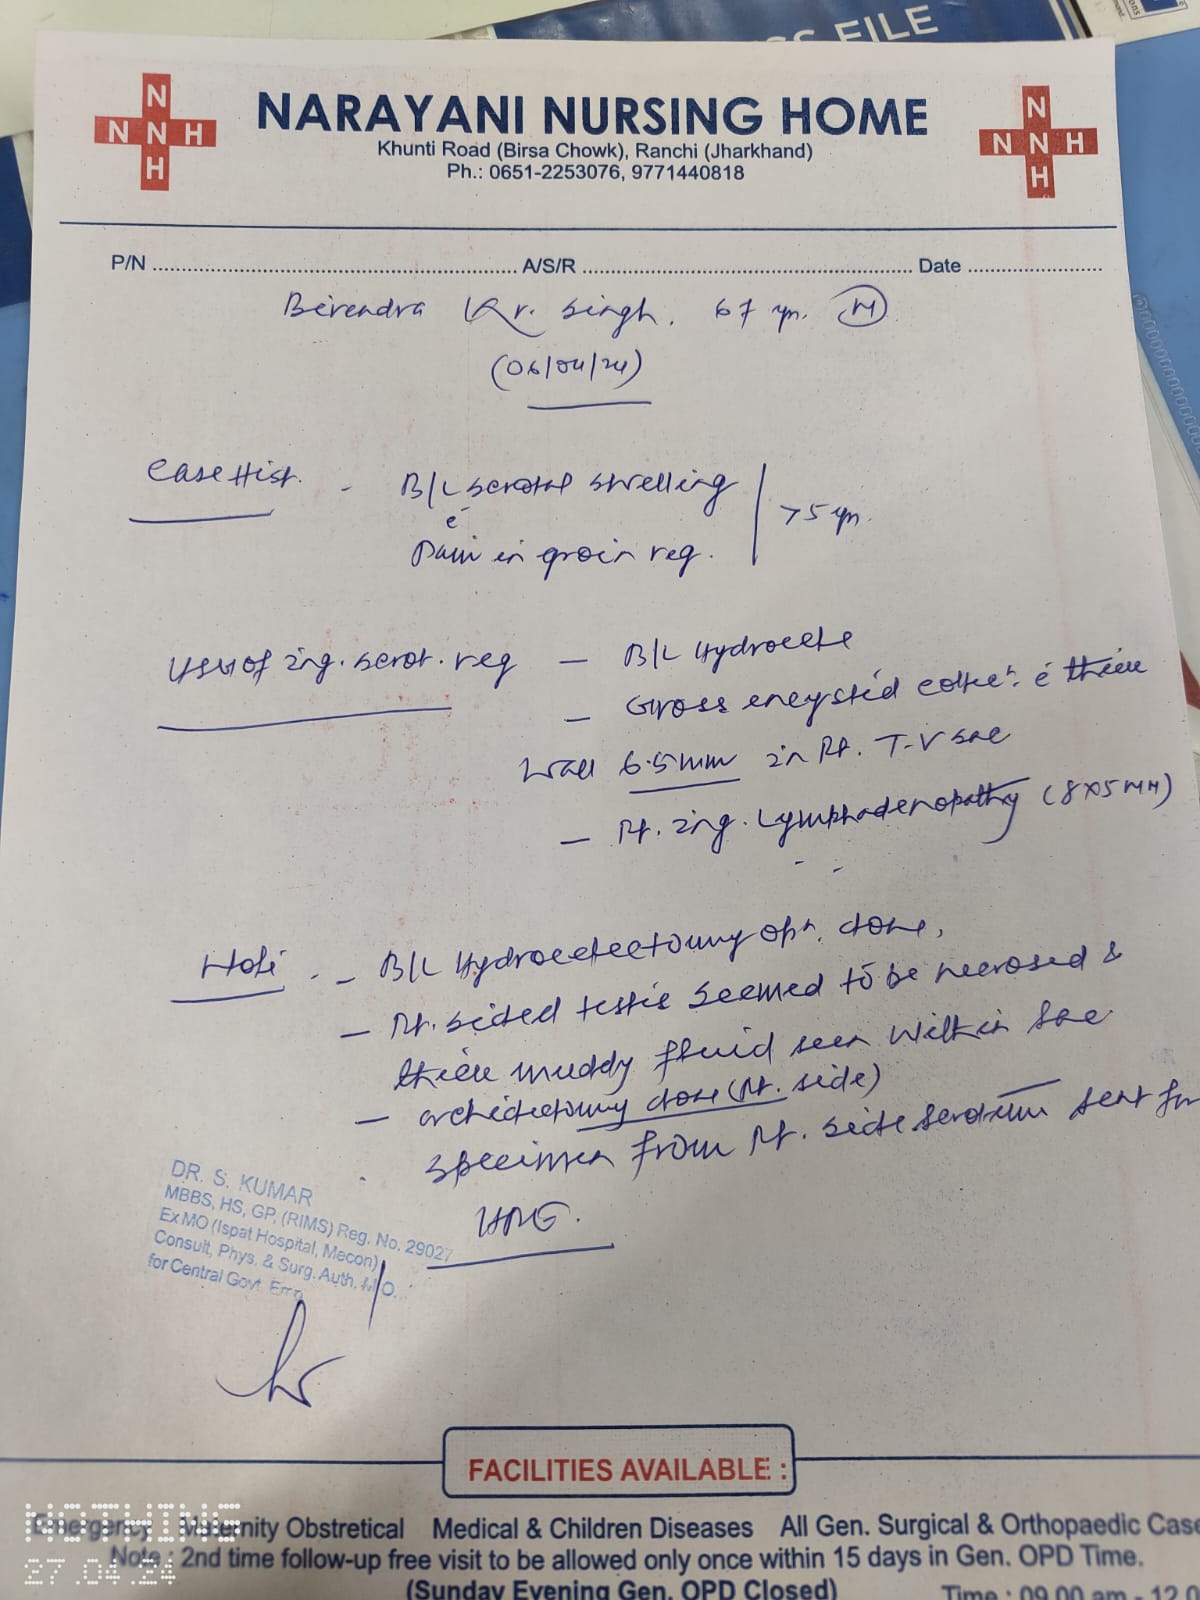 SS FILE
N
N N H
H
N
N N H
H
NARAYANI NURSING HOME
Khunti Road (Birsa Chowk), Ranchi (Jharkhand)
Ph.: 0651-2253076, 9771440818
P/N ........ A/S/R ........ Date ........
Birendra Kr. Singh. 67 yr. M
(06/04/24)
Case Hist. - B/L scrotal swelling
c̄
Pain in groin reg. >5 yr.
USG of ing. scrot. reg - B/L Hydrocele
- Gross encysted collecn. c̄ thick
wall 6.5mm in Rt. T.V sac
- Rt. ing. Lymphadenopathy (8x5MM)
- B/L Hydrocelectomy opn. done,
- Rt. sided testis seemed to be necrosed &
thick muddy fluid seen within sac
- orchidectomy done (Rt. side)
specimen from Rt. side scrotum sent for
HPE.
DR. S. KUMAR
MBBS, HS, GP, (RIMS) Reg. No. 29027
Ex MO (Ispat Hospital, Mecon)
Consult, Phys. & Surg. Auth. M.O.
for Central Govt. Emp
FACILITIES AVAILABLE :
Emergency Maternity Obstretical Medical & Children Diseases All Gen. Surgical & Orthopaedic Case
Note : 2nd time follow-up free visit to be allowed only once within 15 days in Gen. OPD Time.
(Sunday Evening Gen. OPD Closed) Time : 09.00 am - 12.0
NOTHING
27.04.24